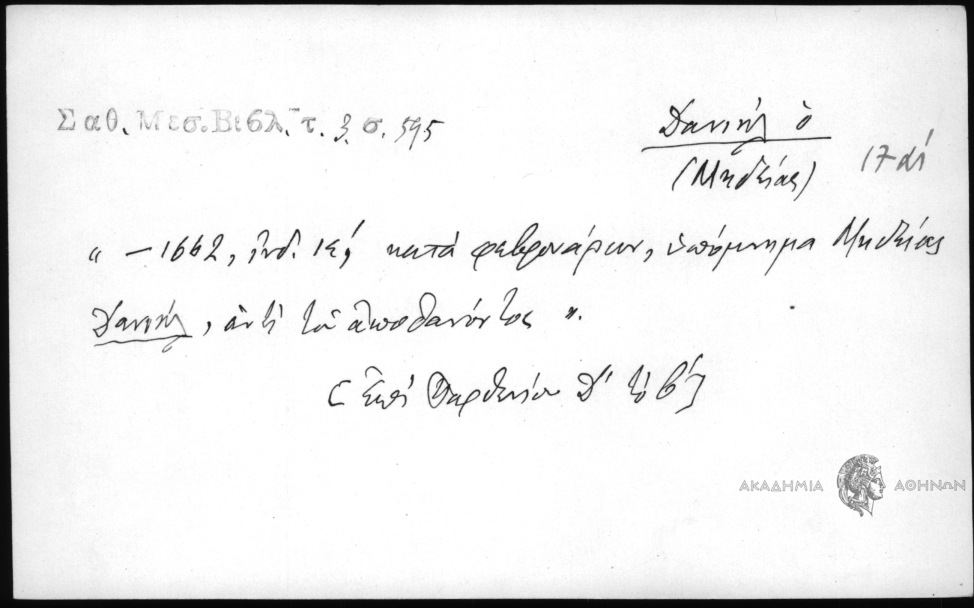 Σαθ. Μεσ. Βιβλ. τ. 3. σ. 595
Δανιήλ ὁ
(Μηδείας)
17 αἰ
" — 1662, ἰνδ. ιε΄, κατὰ φεβρουάριον, ὑπόμνημα Μηδείας
Δανιήλ, ἀντὶ τοῦ ἀποθανόντος ".
(Ἐπὶ Παρθενίου Δ΄ τὸ β΄)
ΑΚΑΔΗΜΙΑ ΑΘΗΝΩΝ